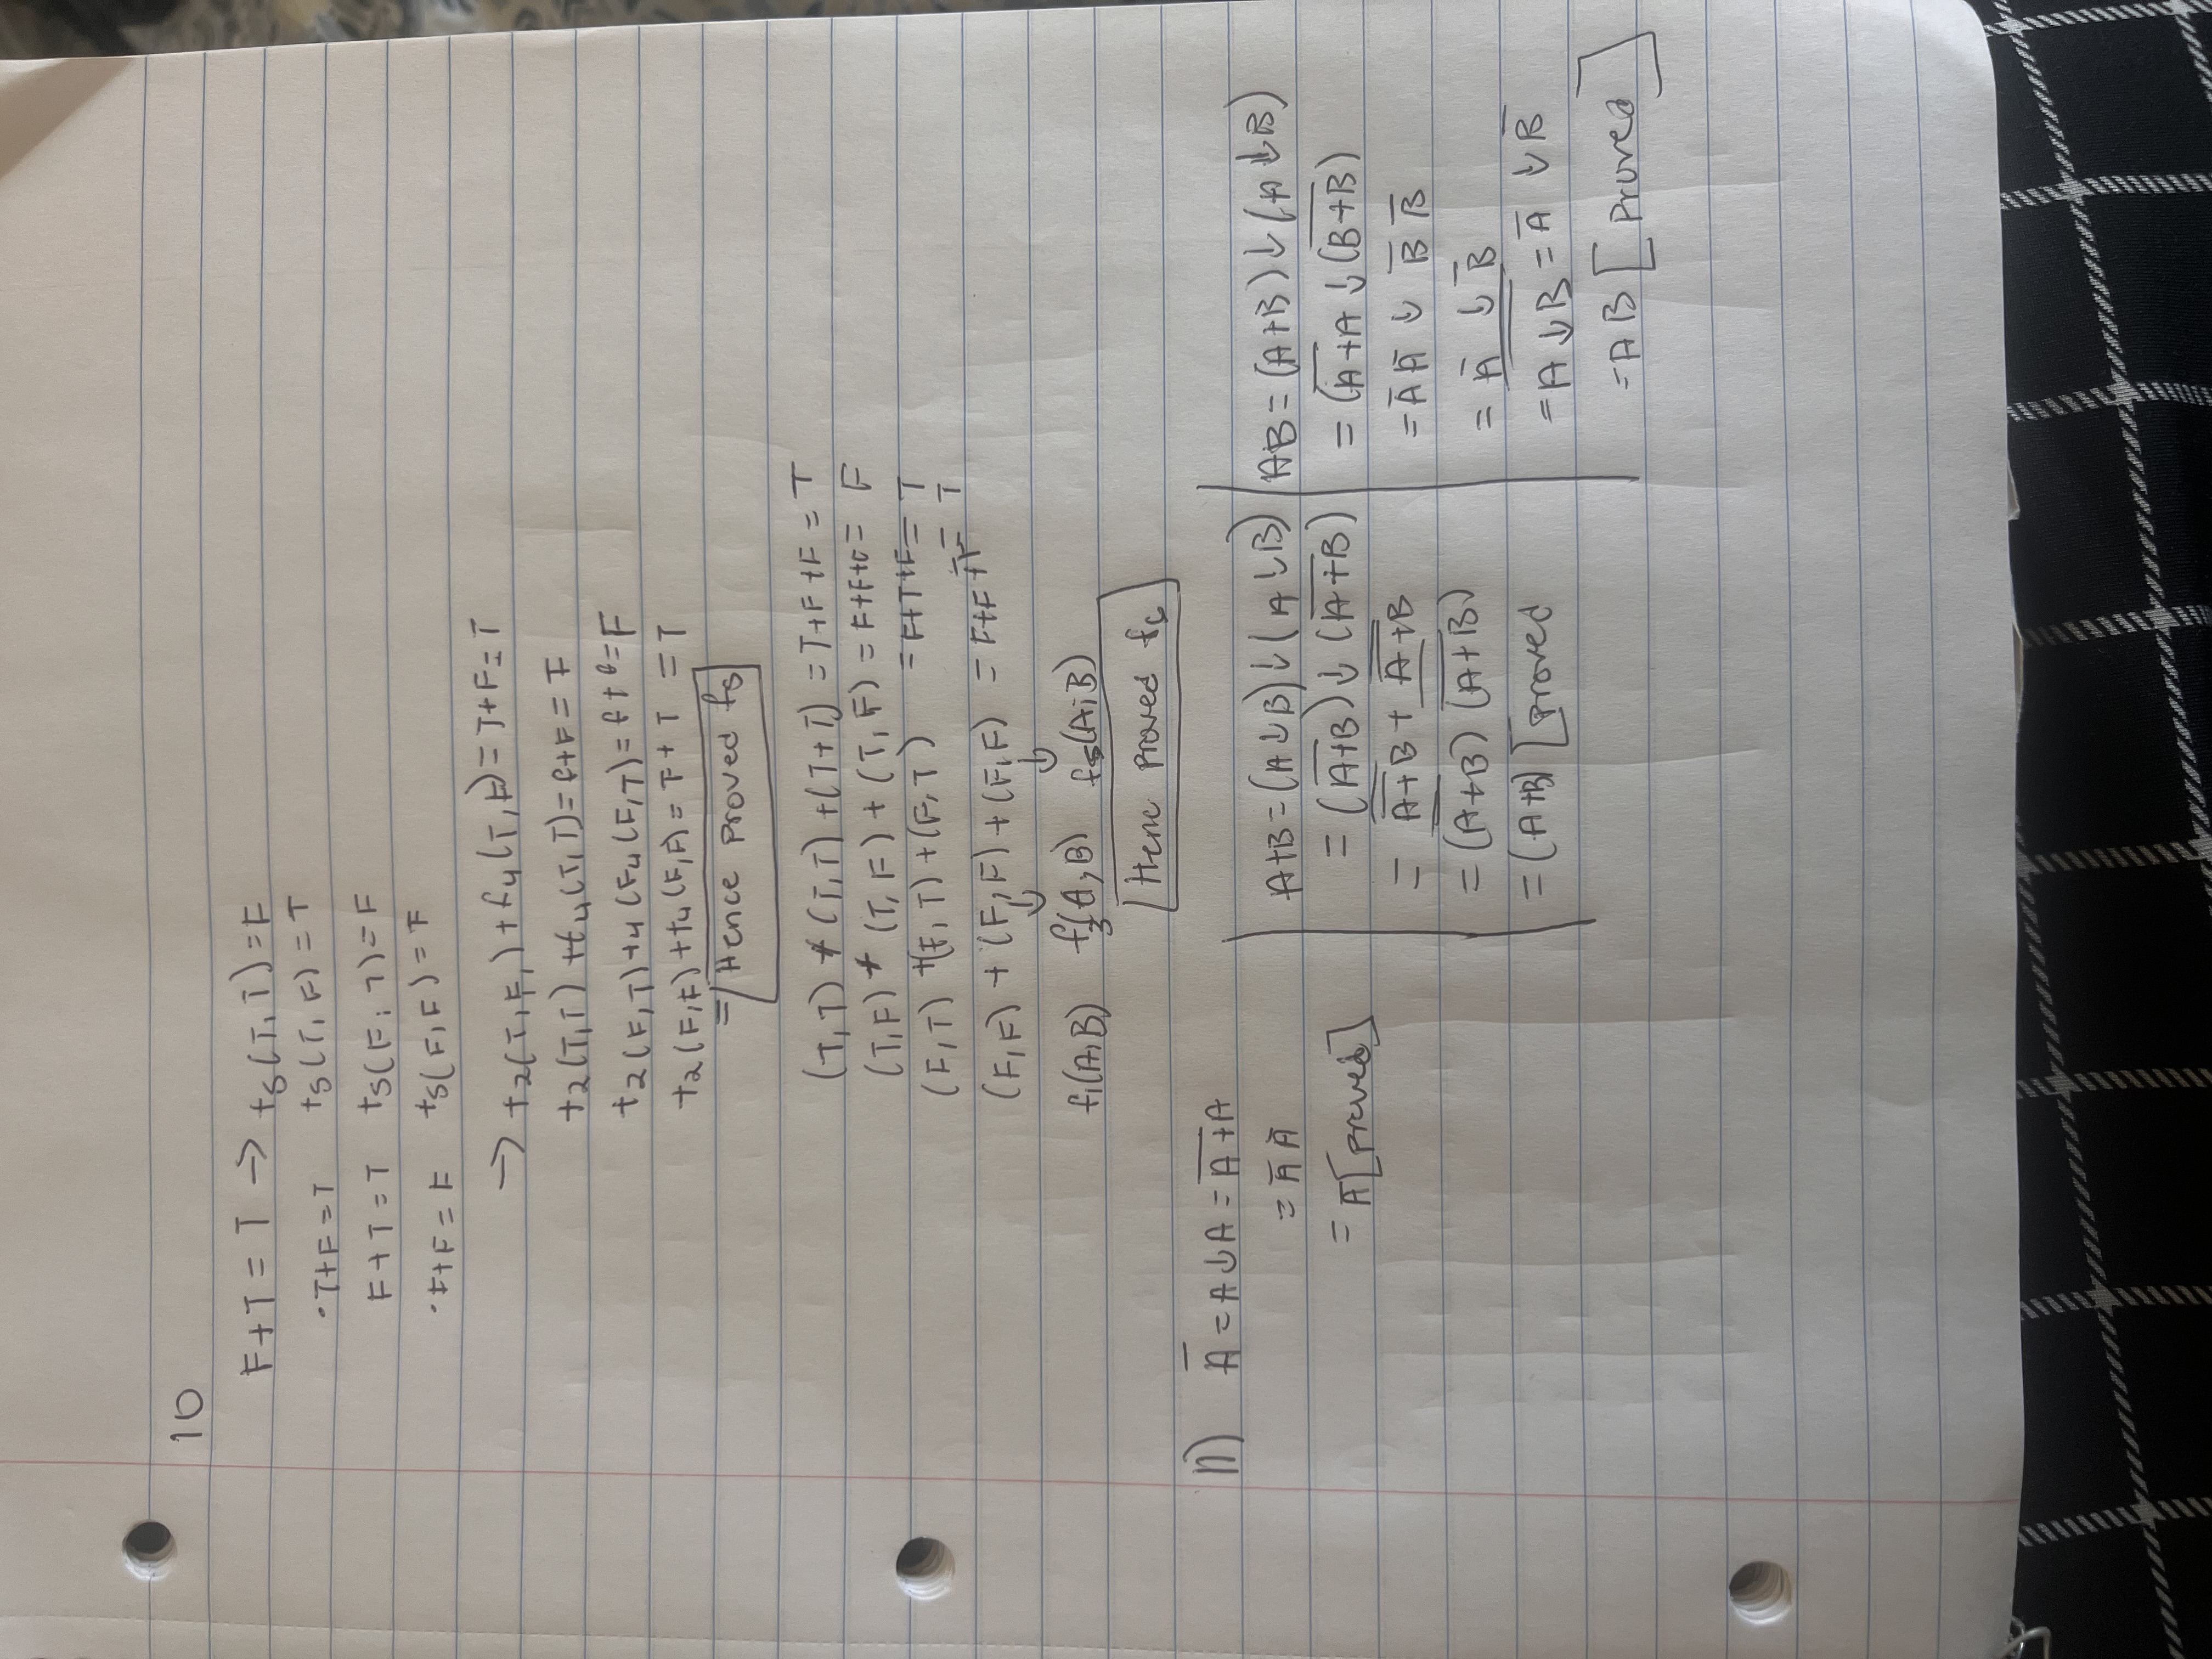 10
F+T = T → ts(T, T) = F
·T+F = T ts(T, F) = T
F+T = T ts(F, T) = F
·F+F = F ts(F, F) = F
→ t2(T, F,) + f4(T, F) = T+F = T
t2(T, T) + t4(T, T) = f+F = F
t2(F, T) + 4 (F4(F, T) = f + f = F
t2(F, F) + t4(F, F) = F + T = T
= Hence proved fs
(T, T) + (T, T) + (T+T) = T+F+F = T
(T, F) + (T, F) + (T, F) = F+F+F = F
(F, T) + (F, T) + (F, T) = F+T+F = T
(F, F) + (F, F) + (F, F) = F+F+T = T
↓ ↓
f1(A, B) f3(A, B) fs(A, B)
Henc proved f6
11) A̅ = A↓A = A̅ ̅+̅A
= A̅ A̅
= A̅ [proved]
A+B = (A↓B)↓(A↓B)
= (A̅+̅B)↓(A̅+̅B)
= A̅+̅B + A̅+̅B
= (A̅+̅B) (A̅+̅B)
= (A+B) [proved
AB = (A+B)↓(A↓B)
= (A̅+̅A ↓ (B̅+̅B)
= A̅ A̅ ↓ B̅ B̅
= A̅ ↓ B̅
= A↓B = A̅ ↓ B̅
= AB [proved]